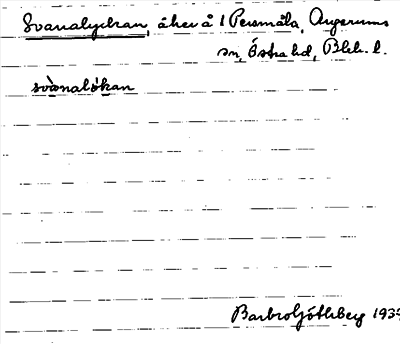 Svanalyckan, åker å 1 Persmåla, Augerums
sn, Östra hd, Blek. l.
svànalókan
Barbro Götlberg 193